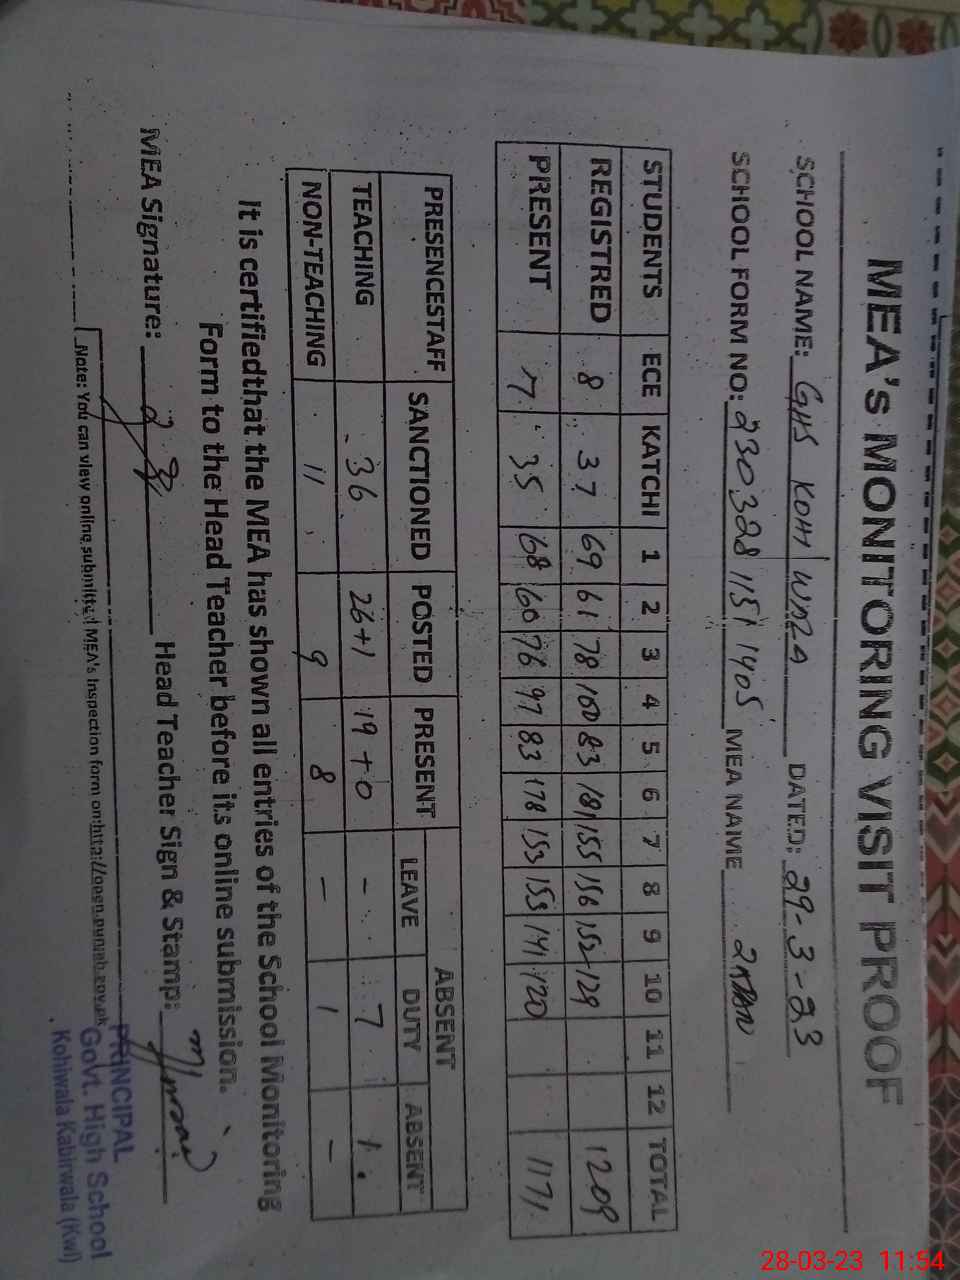 MEA's MONITORING VISIT PROOF
SCHOOL NAME: GHS KOHI WALA DATED: 29-3-23
SCHOOL FORM NO: 230328 1151 1405 MEA NAME
STUDENTS ECE KATCHI 1 2 3 4 5 6 7 8 9 10 11 12 TOTAL
REGISTRED 8 37 69 61 78 100 83 181 155 156 152 129 1209
PRESENT 7 35 68 60 76 97 83 178 153 153 141 120 1171
PRESENCESTAFF SANCTIONED POSTED PRESENT ABSENT
LEAVE DUTY ABSENT
TEACHING 36 26+1 19+0 - 7 1
NON-TEACHING 11 9 8 - 1 -
It is certifiedthat the MEA has shown all entries of the School Monitoring
Form to the Head Teacher before its online submission.
MEA Signature: Head Teacher Sign & Stamp:
Note: You can view online submitted MEA's Inspection form on:
PRINCIPAL
Govt. High School
Kohiwala Kabirwala (Kwl)
28-03-23 11:54